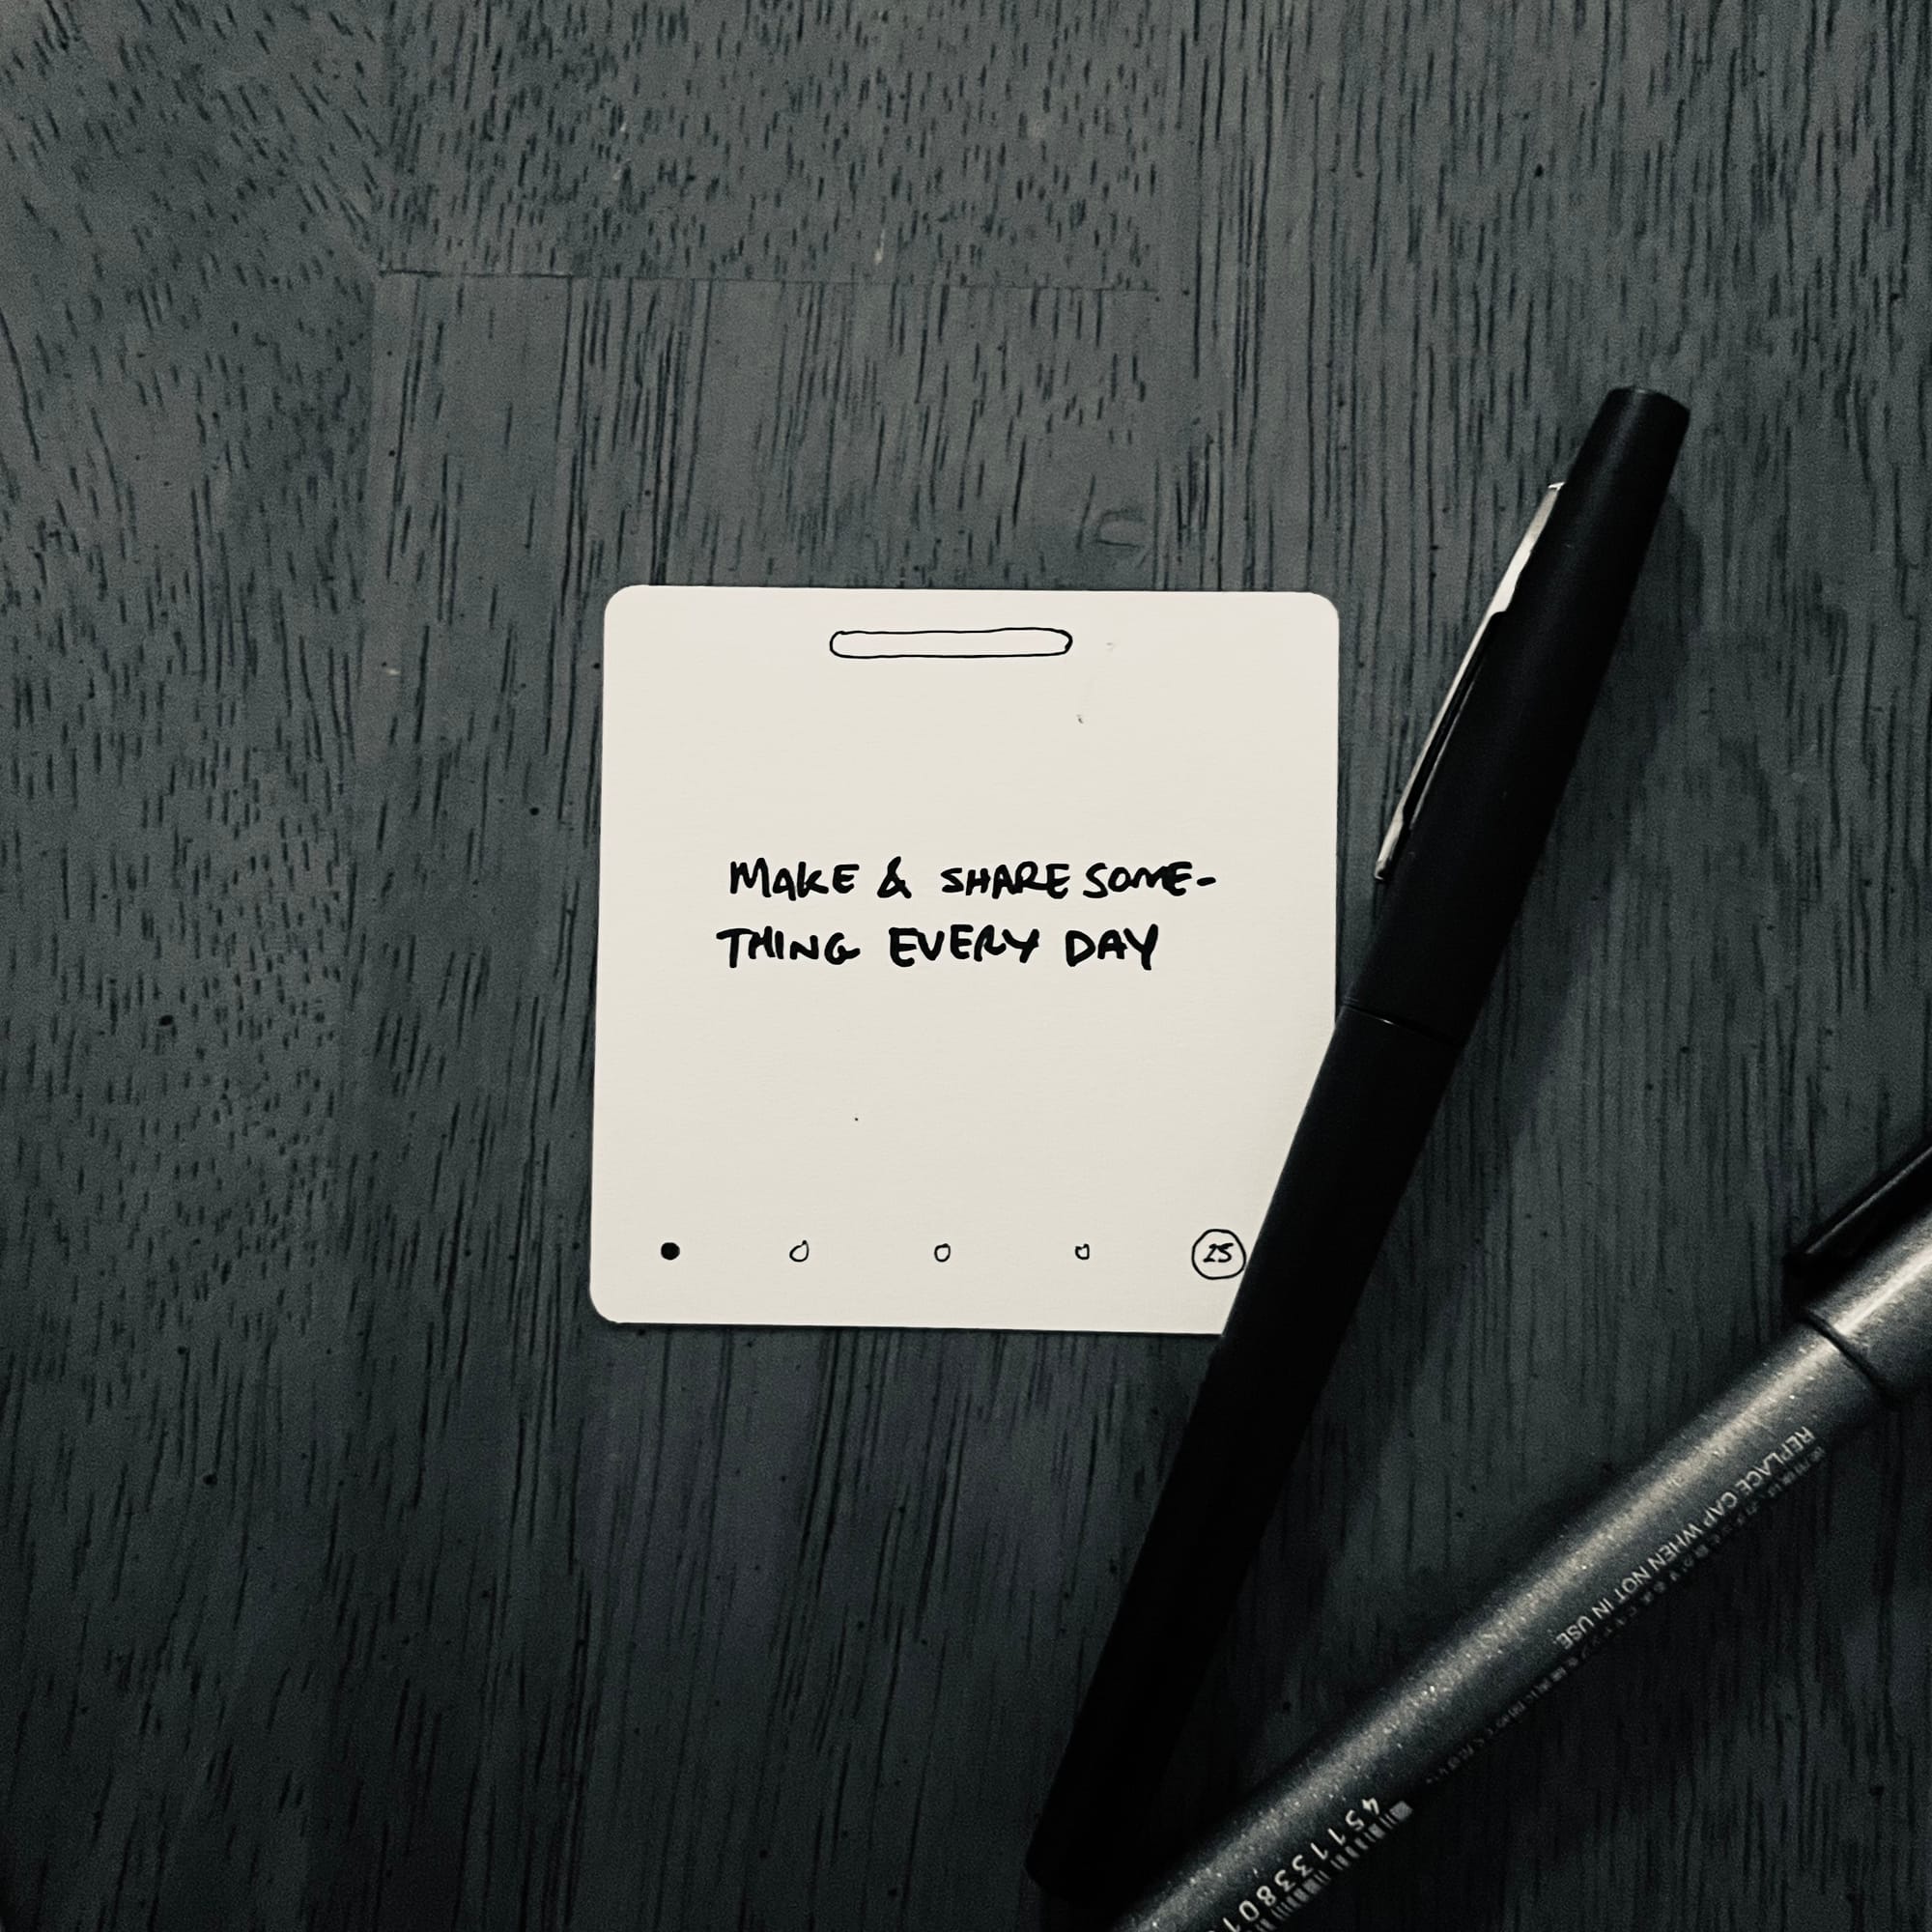 MAKE & SHARE SOME-
THING EVERY DAY
25
REPLACE CAP WHEN NOT IN USE